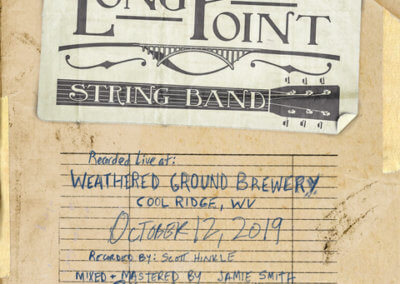 LONG POINT
STRING BAND
Recorded Live at:
WEATHERED GROUND BREWERY
COOL RIDGE, WV
OCTOBER 12, 2019
RECORDED BY: SCOTT HINKLE
MIXED + MASTERED BY JAMIE SMITH